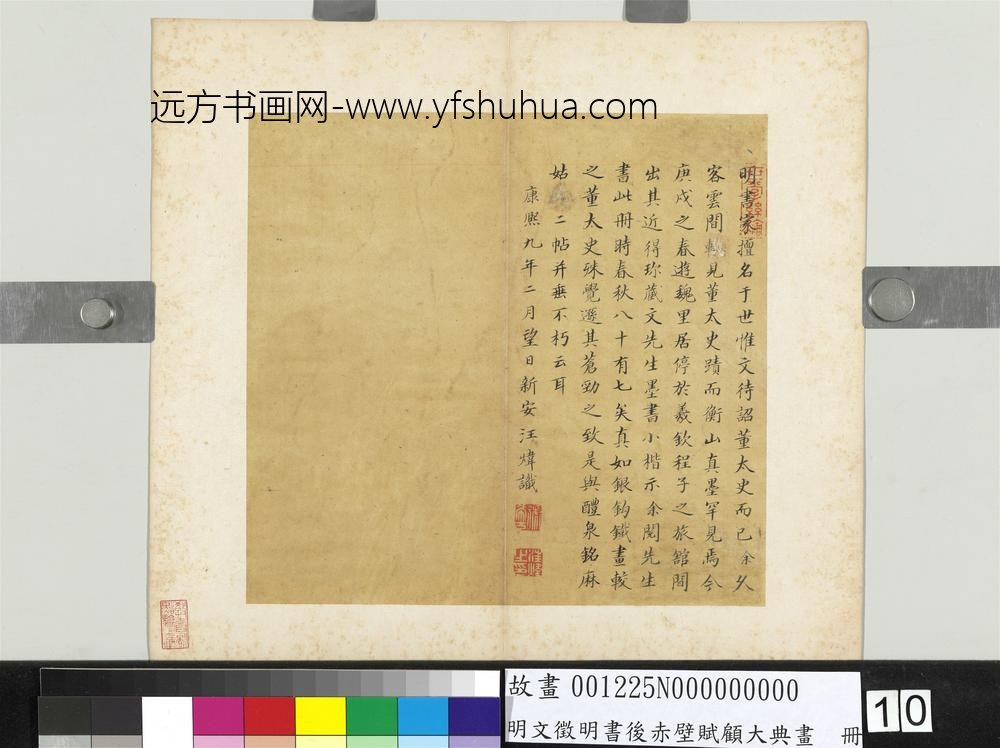 远方书画网-www.yfshuhua.com
明書家擅名于世惟文待詔董太史而已余久
客雲間輒見董太史蹟而衡山真墨罕見焉今
庚戌之春遊魏里居停於羲欽程子之旅舘閒
出其近得珎藏文先生墨書小楷示余閱先生
書此冊時春秋八十有七矣真如銀鈎鐵畫較
之董太史殊覺遜其蒼勁之致是與醴泉銘麻
姑二帖并垂不朽云耳
康熙九年二月望日新安汪煒識
故畫 001225N000000000
明文徵明書後赤壁賦顧大典畫 冊
10